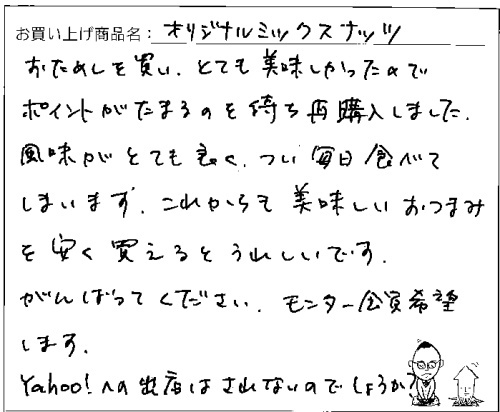 お買い上げ商品名：オリジナルミックスナッツ
おためしを買い、とても美味しかったので
ポイントがたまるのを待ち再購入しました。
風味がとても良く、つい毎日食べて
しまいます。これからも美味しいおつまみ
を安く買えるとうれしいです。
がんばってください。モニター会員希望
します。
Yahoo!への出店はされないのでしょうか?